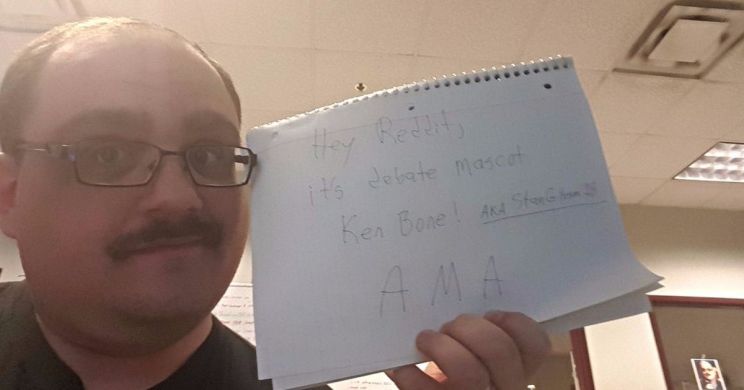 Hey Reddit,
it's debate mascot
Ken Bone! AKA StanGibson
AMA